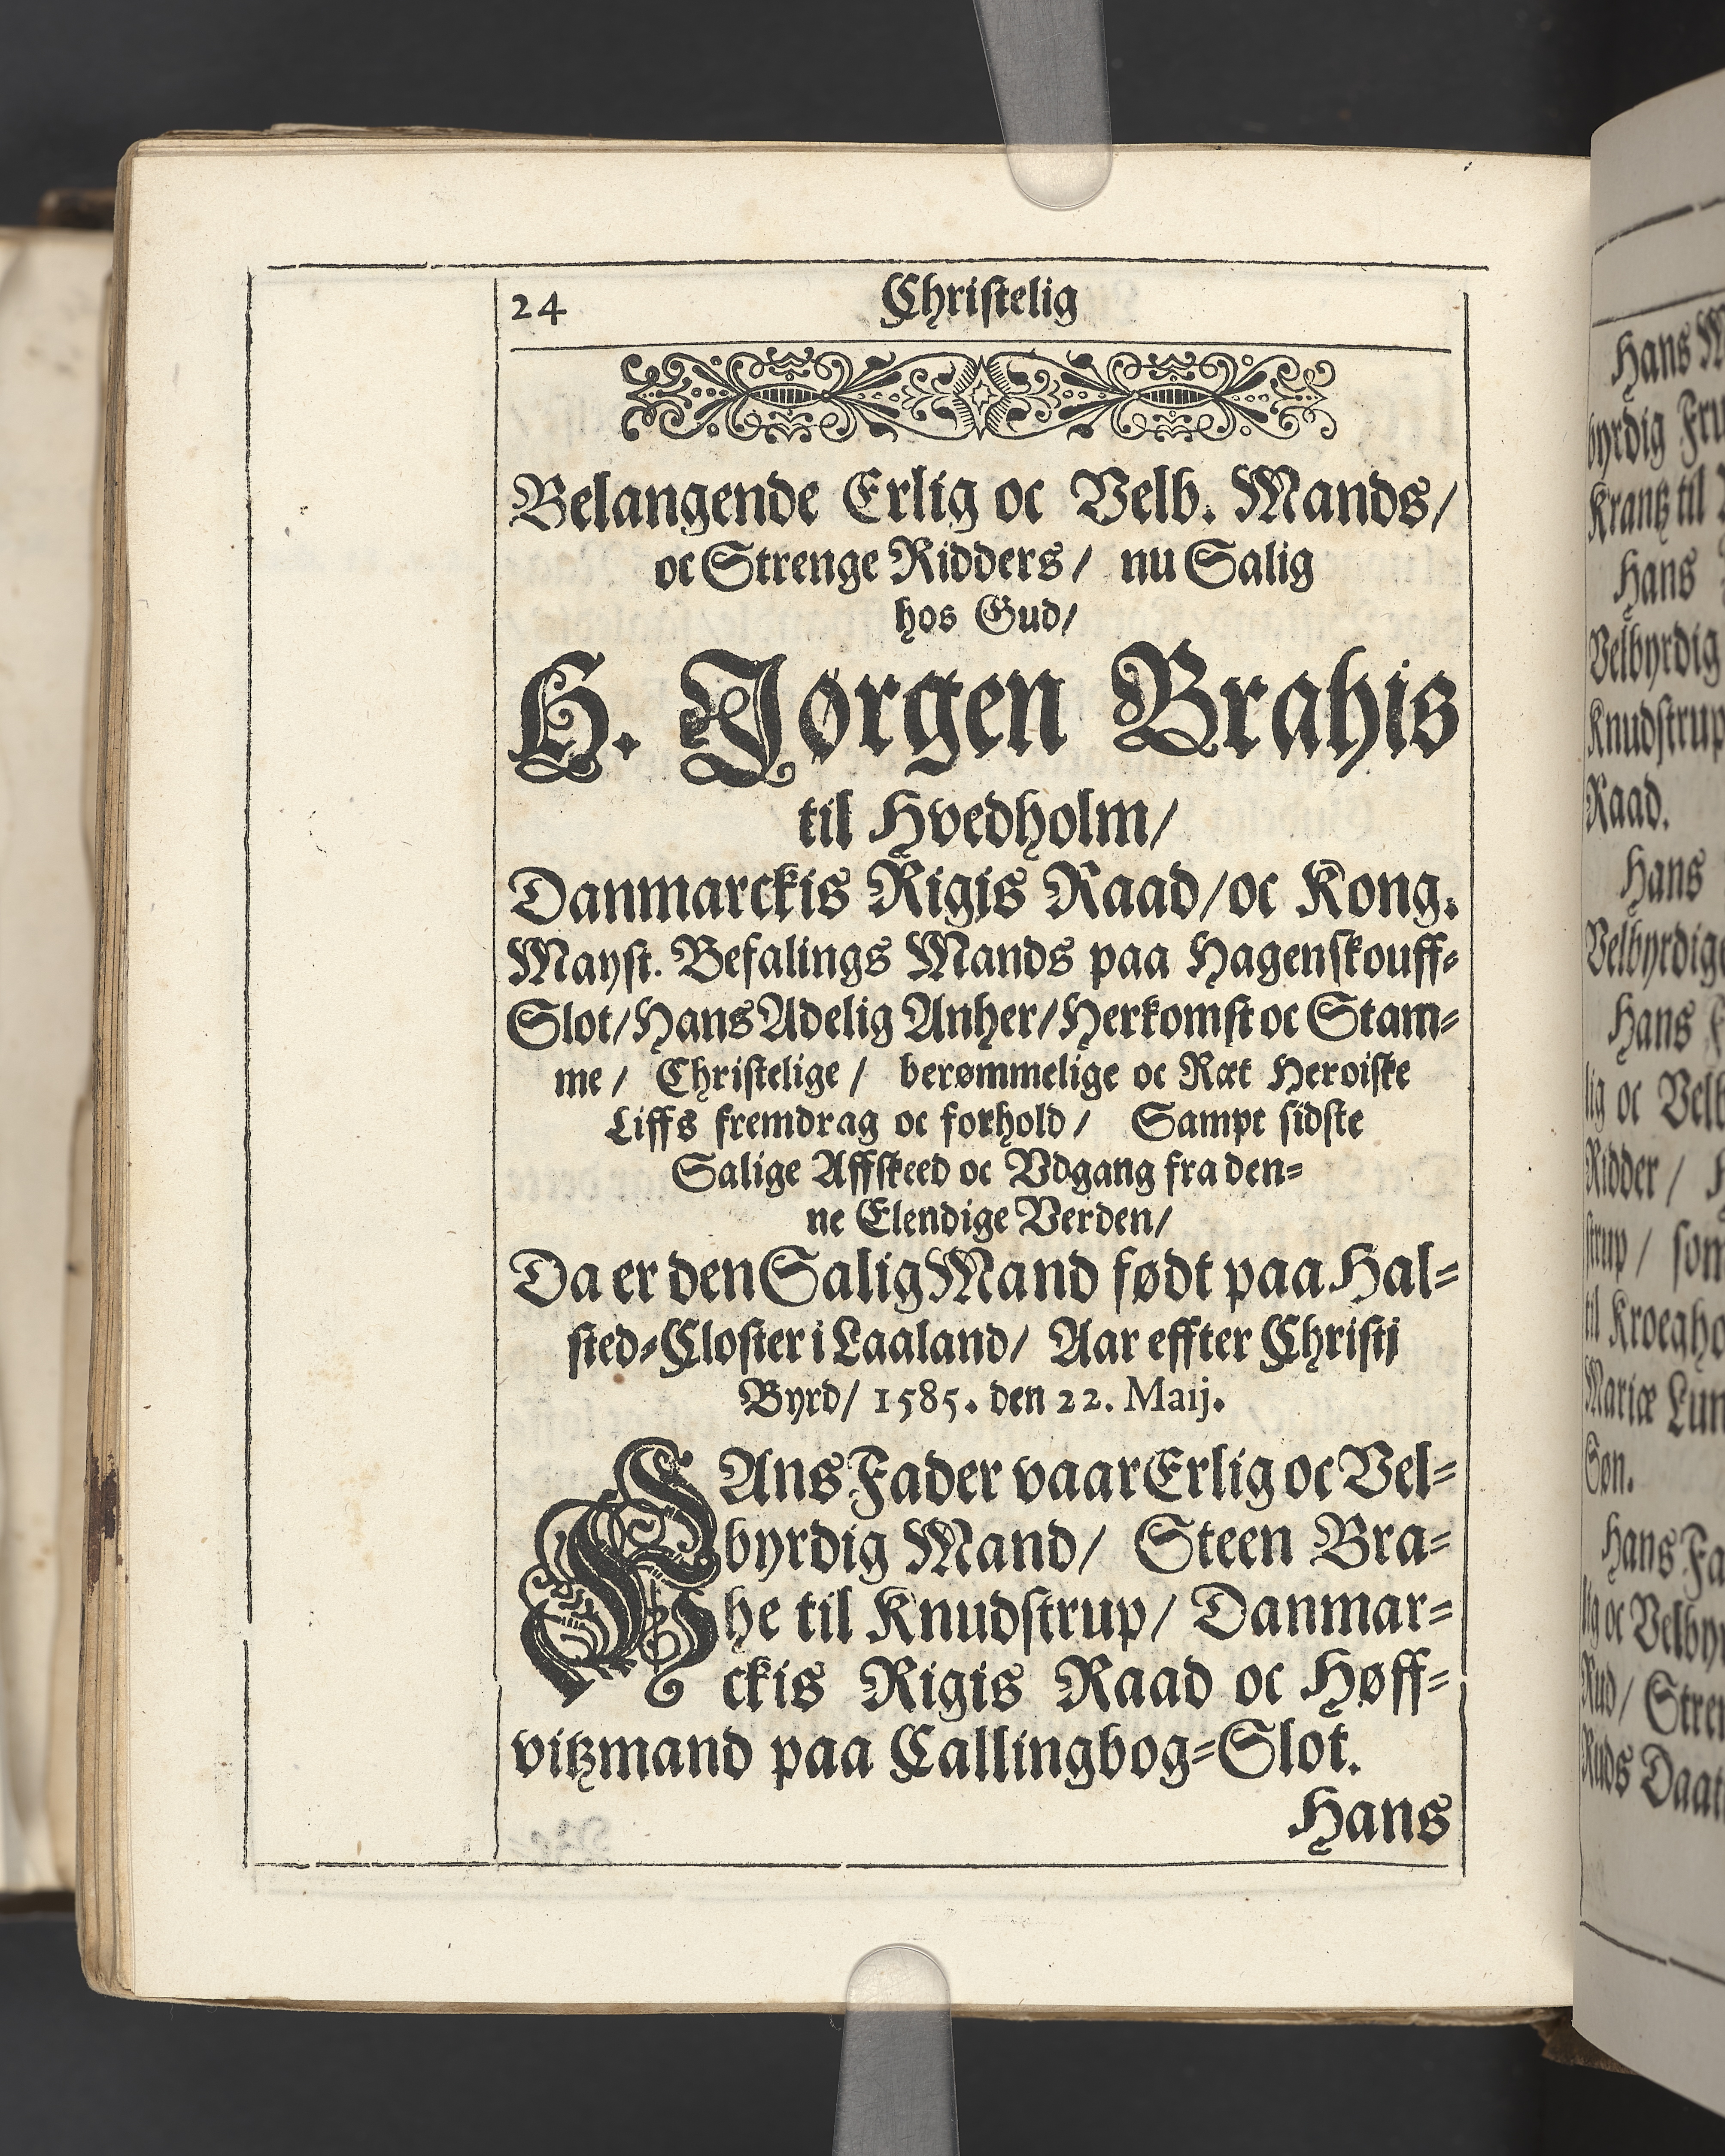 24 Christelig
Belangende Erlig oc Velb. Mands/
oc Strenge Ridders/ nu Salig
hos Gud/
H. Jørgen Brahis
til Hvedholm/
Danmarckis Rigis Raad/oc Kong.
Mayst. Befalings Mands paa Hagenskouff-
Slot/Hans Adelig Anher/Herkomst oc Stam-
me/ Christelige/ berømmelige oc Ræt Heroiske
Liffs fremdrag oc forhold/ Sampt sidste
Salige Affskeed oc Vdgang fra den-
ne Elendige Verden/
Da er den Salig Mand født paa Hal-
sted-Closter i Laaland/ Aar effter Christj
Byrd/ 1585. den 22. Maij.
HAns Fader vaar Erlig oc Vel-
byrdig Mand/ Steen Bra-
he til Knudstrup/ Danmar-
ckis Rigis Raad oc Høff-
vitzmand paa Callingbog-Slot.
Hans
Hans
byrdig
Krantz til
Hans
Velbyrdig
Knudstrup
Raad.
Hans
Velbyrdige
Hans
lig oc Velb
Ridder/
strup/ som
til
Mariæ
Søn.
Hans
lig oc
Rud/
Ruds